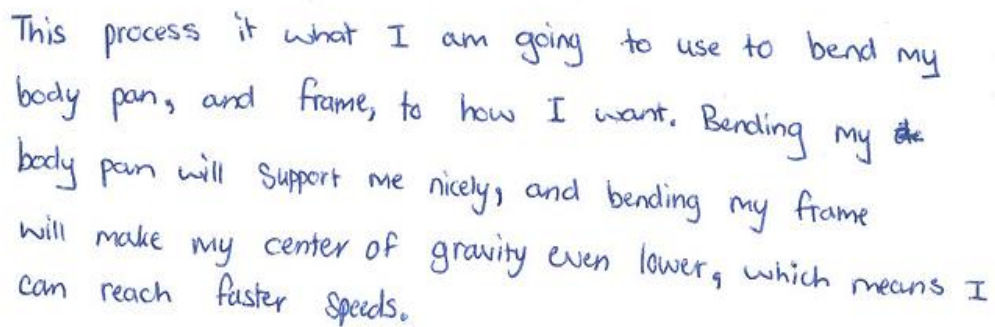 This process it what I am going to use to bend my
body pan, and frame, to how I want. Bending my
body pan will support me nicely, and bending my frame
will make my center of gravity even lower, which means I
can reach faster speeds.